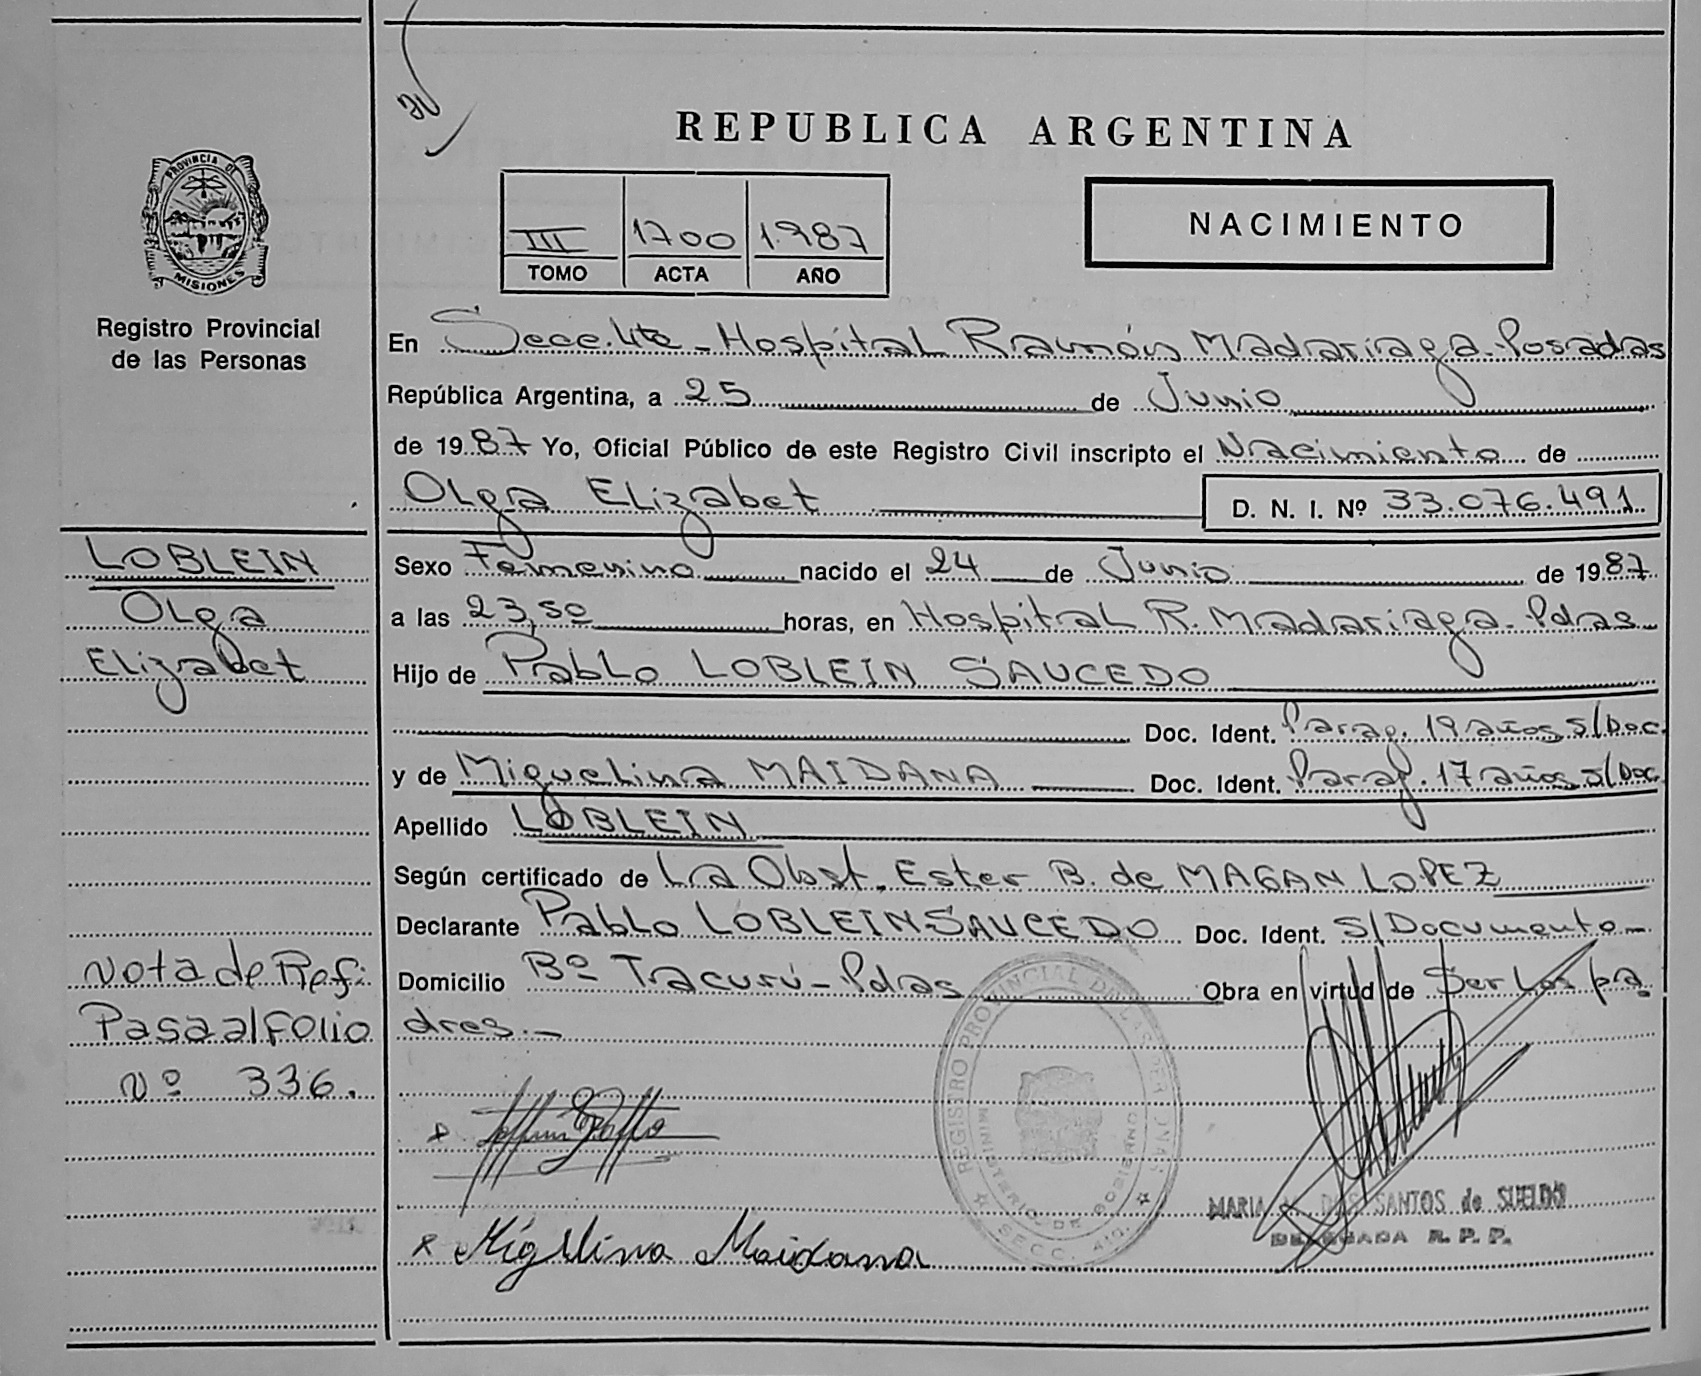 REPUBLICA ARGENTINA
PROVINCIA DE
MISIONES
Registro Provincial
de las Personas
III 1700 1.987
TOMO ACTA AÑO
NACIMIENTO
En Secc. 4ta - Hospital Ramón Madariaga - Posadas
República Argentina, a 25 de Junio
de 1987 Yo, Oficial Público de este Registro Civil inscripto el Nacimiento de
Olga Elizabet D. N. I. Nº 33.076.491
LOBLEIN
Olga
Elizabet
Sexo Femenino nacido el 24 de Junio de 1987
a las 23,50 horas, en Hospital R. Madariaga - Pdas
Hijo de Pablo LOBLEIN SAUCEDO
Doc. Ident. Parag. 19 años s/Doc.
y de Miguelina MAIDANA Doc. Ident. Parag. 17 años s/Doc.
Apellido LOBLEIN
Según certificado de La Obst. Ester B. de MAGAN LOPEZ
Declarante Pablo LOBLEIN SAUCEDO Doc. Ident. S/Documento
Domicilio Bº Tacurú - Pdas Obra en virtud de Ser los pa
dres.-
Nota de Ref:
Pasa al Folio
Nº 336.
REGISTRO PROVINCIAL DE LAS PERSONAS
MINISTERIO DE GOBIERNO
SECC. 4ta.
MARIA DOS SANTOS de SUELDO
DELEGADA R. P. P.
x Miguelina Maidana